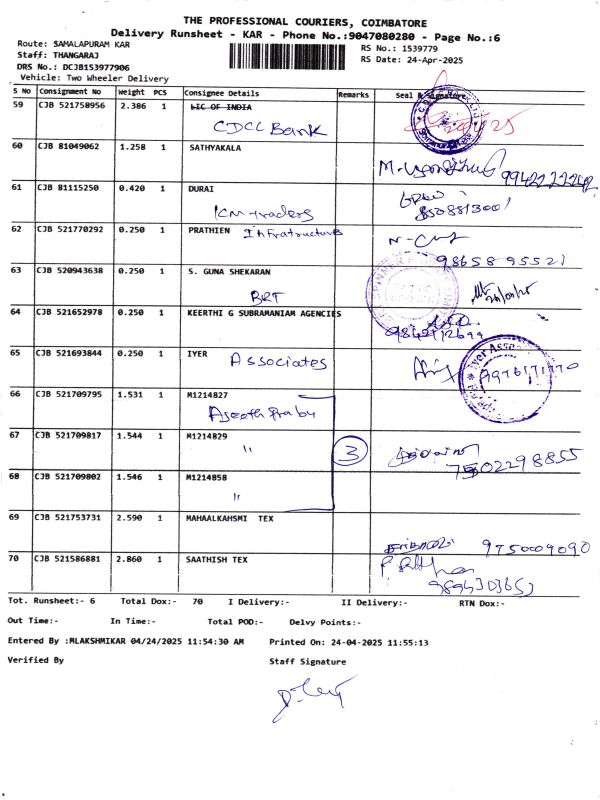 THE PROFESSIONAL COURIERS, COIMBATORE
Delivery Runsheet - KAR - Phone No.:9047080280 - Page No.:6
Route: SAMALAPURAM KAR
RS No.: 1539779
Staff: THANGARAJ
RS Date: 24-Apr-2025
DRS No.: DCJB153977906
Vehicle: Two Wheeler Delivery
S No Consignment No Weight PCS Consignee Details Remarks Seal & Signature
59 CJB 521758956 2.386 1 LIC OF INDIA
CDCC Bank
60 CJB 81049062 1.258 1 SATHYAKALA
61 CJB 81115250 0.420 1 DURAI
KM traders
62 CJB 521770292 0.250 1 PRATHIEN Infratructures
98658 95521
63 CJB 520943638 0.250 1 S. GUNA SHEKARAN
BRT
64 CJB 521652978 0.250 1 KEERTHI G SUBRAMANIAM AGENCIES
65 CJB 521693844 0.250 1 IYER
Associates
66 CJB 521709795 1.531 1 M1214827
67 CJB 521709817 1.544 1 M1214829
" 3
68 CJB 521709802 1.546 1 M1214858
"
69 CJB 521753731 2.590 1 MAHAALKAHSMI TEX
9750009090
70 CJB 521586881 2.860 1 SAATHISH TEX
Tot. Runsheet:- 6 Total Dox:- 70 I Delivery:- II Delivery:- RTN Dox:-
Out Time:- In Time:- Total POD:- Delvy Points:-
Entered By :MLAKSHMIKAR 04/24/2025 11:54:30 AM Printed On: 24-04-2025 11:55:13
Verified By Staff Signature